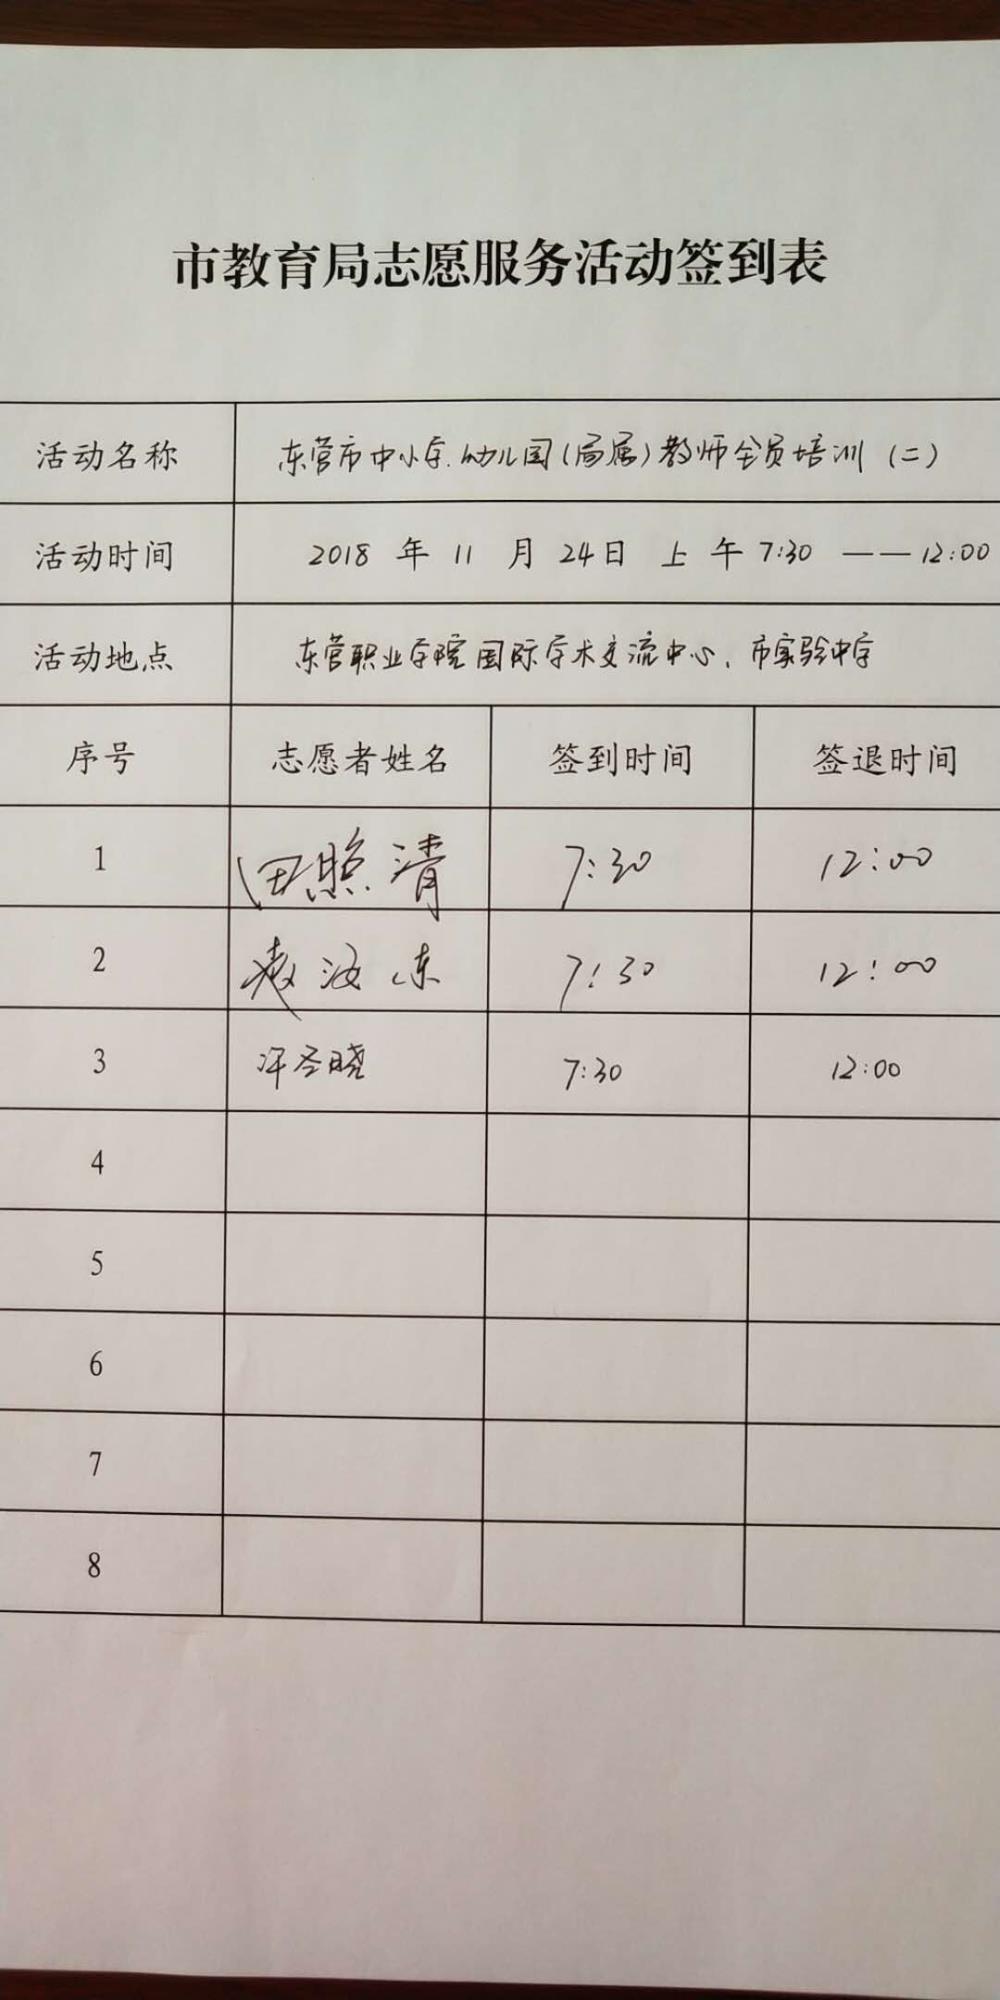 市教育局志愿服务活动签到表
活动名称 东营市中小学、幼儿园(局属)教师全员培训(二)
活动时间 2018年11月24日 上午7:30——12:00
活动地点 东营职业学院国际学术交流中心、市实验中学
序号 志愿者姓名 签到时间 签退时间
1 田照清 7:30 12:00
2 袁汝东 7:30 12:00
3 圣晓 7:30 12:00
4
5
6
7
8